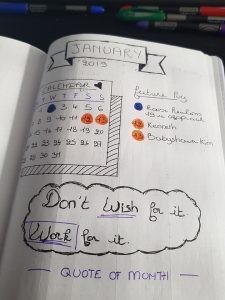 JANUARY
2019
CALENDAR
T W T F S S
3 4 5 6
8 9 10 11 12 13
15 16 17 18 19 20
22 23 24 25 26 27
29 30 31
future log
12 Kenneth
13 Babyshower Kim
Don't Wish for it.
Work for it.
QUOTE OF MONTH